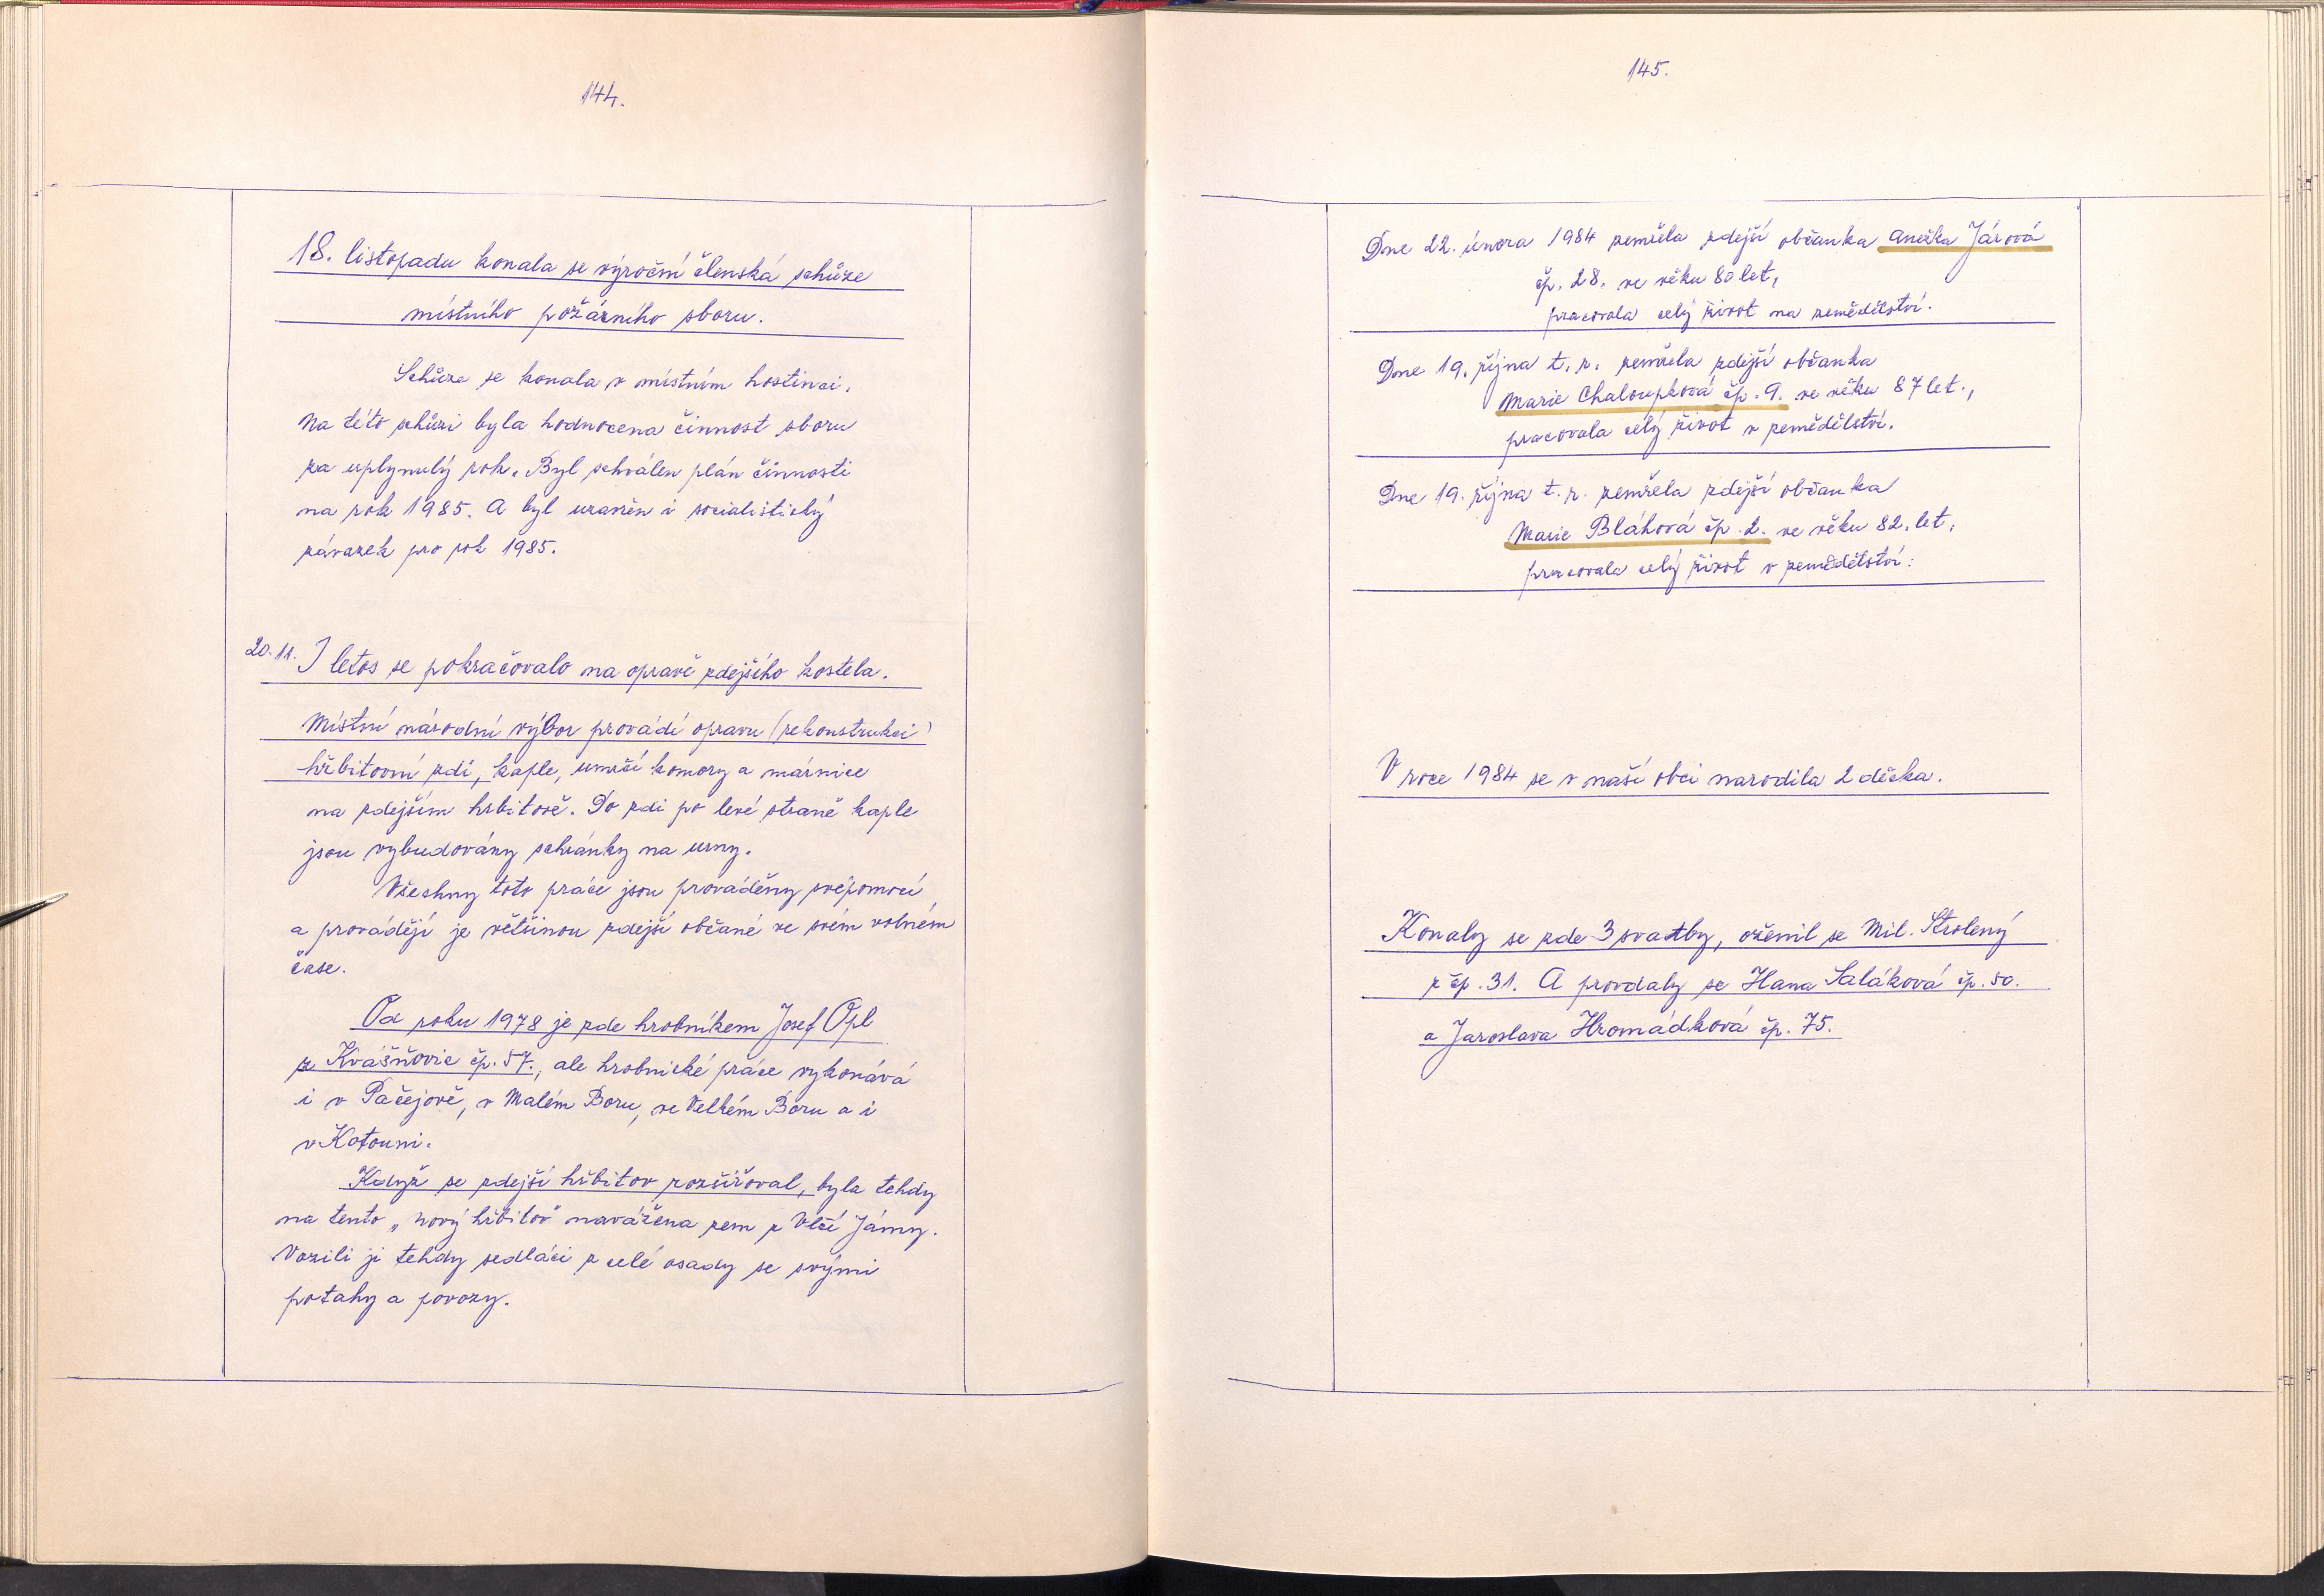 144.
18. listopadu konala se výroční členská schůze
místního požárního sboru.
Schůze se konala v místním hostinci.
Na této schůzi byla hodnocena činnost sboru
za uplynulý rok. Byl schválen plán činnosti
na rok 1985. A byl uzavřen i socialistický
závazek pro rok 1985.
20.11. I letos se pokračovalo na opravě zdejšího kostela.
Místní národní výbor provádí opravu (rekonstrukci)
hřbitovní zdi, kaple, umrčí komory a márnice
na zdejším hřbitově. Do zdi po levé straně kaple
jsou vybudovány schránky na urny.
Všechny toto práce jsou prováděny svépomocí
a provádějí je většinou zdejší občané ve svém volném
čase.
Od roku 1978 je zde hrobníkem Josef Opl
z Kvášňovic čp. 57., ale hrobnické práce vykonává
i v Pačejově, v Malém Boru, ve Velkém Boru a i
v Kotouni.
Když se zdejší hřbitov rozšiřoval, byla tehdy
na tento „nový hřbitov" navážena zem z Vlčí Jámy.
Vozili ji tehdy sedláci z celé osady se svými
potahy a povozy.
145.
Dne 22. února 1984 zemřela zdejší občanka Anežka Járová
čp. 28. ve věku 80 let,
pracovala celý život na zemědělství.
Dne 19. října t. r. zemřela zdejší občanka
Marie Chaloupková čp. 9. ve věku 87 let.,
pracovala celý život v zemědělství.
Dne 19. října t. r. zemřela zdejší občanka
Marie Bláhová čp. 2. ve věku 82. let,
pracovala celý život v zemědělství.
V roce 1984 se v naší obci narodila 2 děcka.
Konaly se zde 3 svatby, oženil se Mil.
z čp. 31. A provdaly se Hana Saláková čp. 50.
a Jaroslava Hromádková čp. 75.